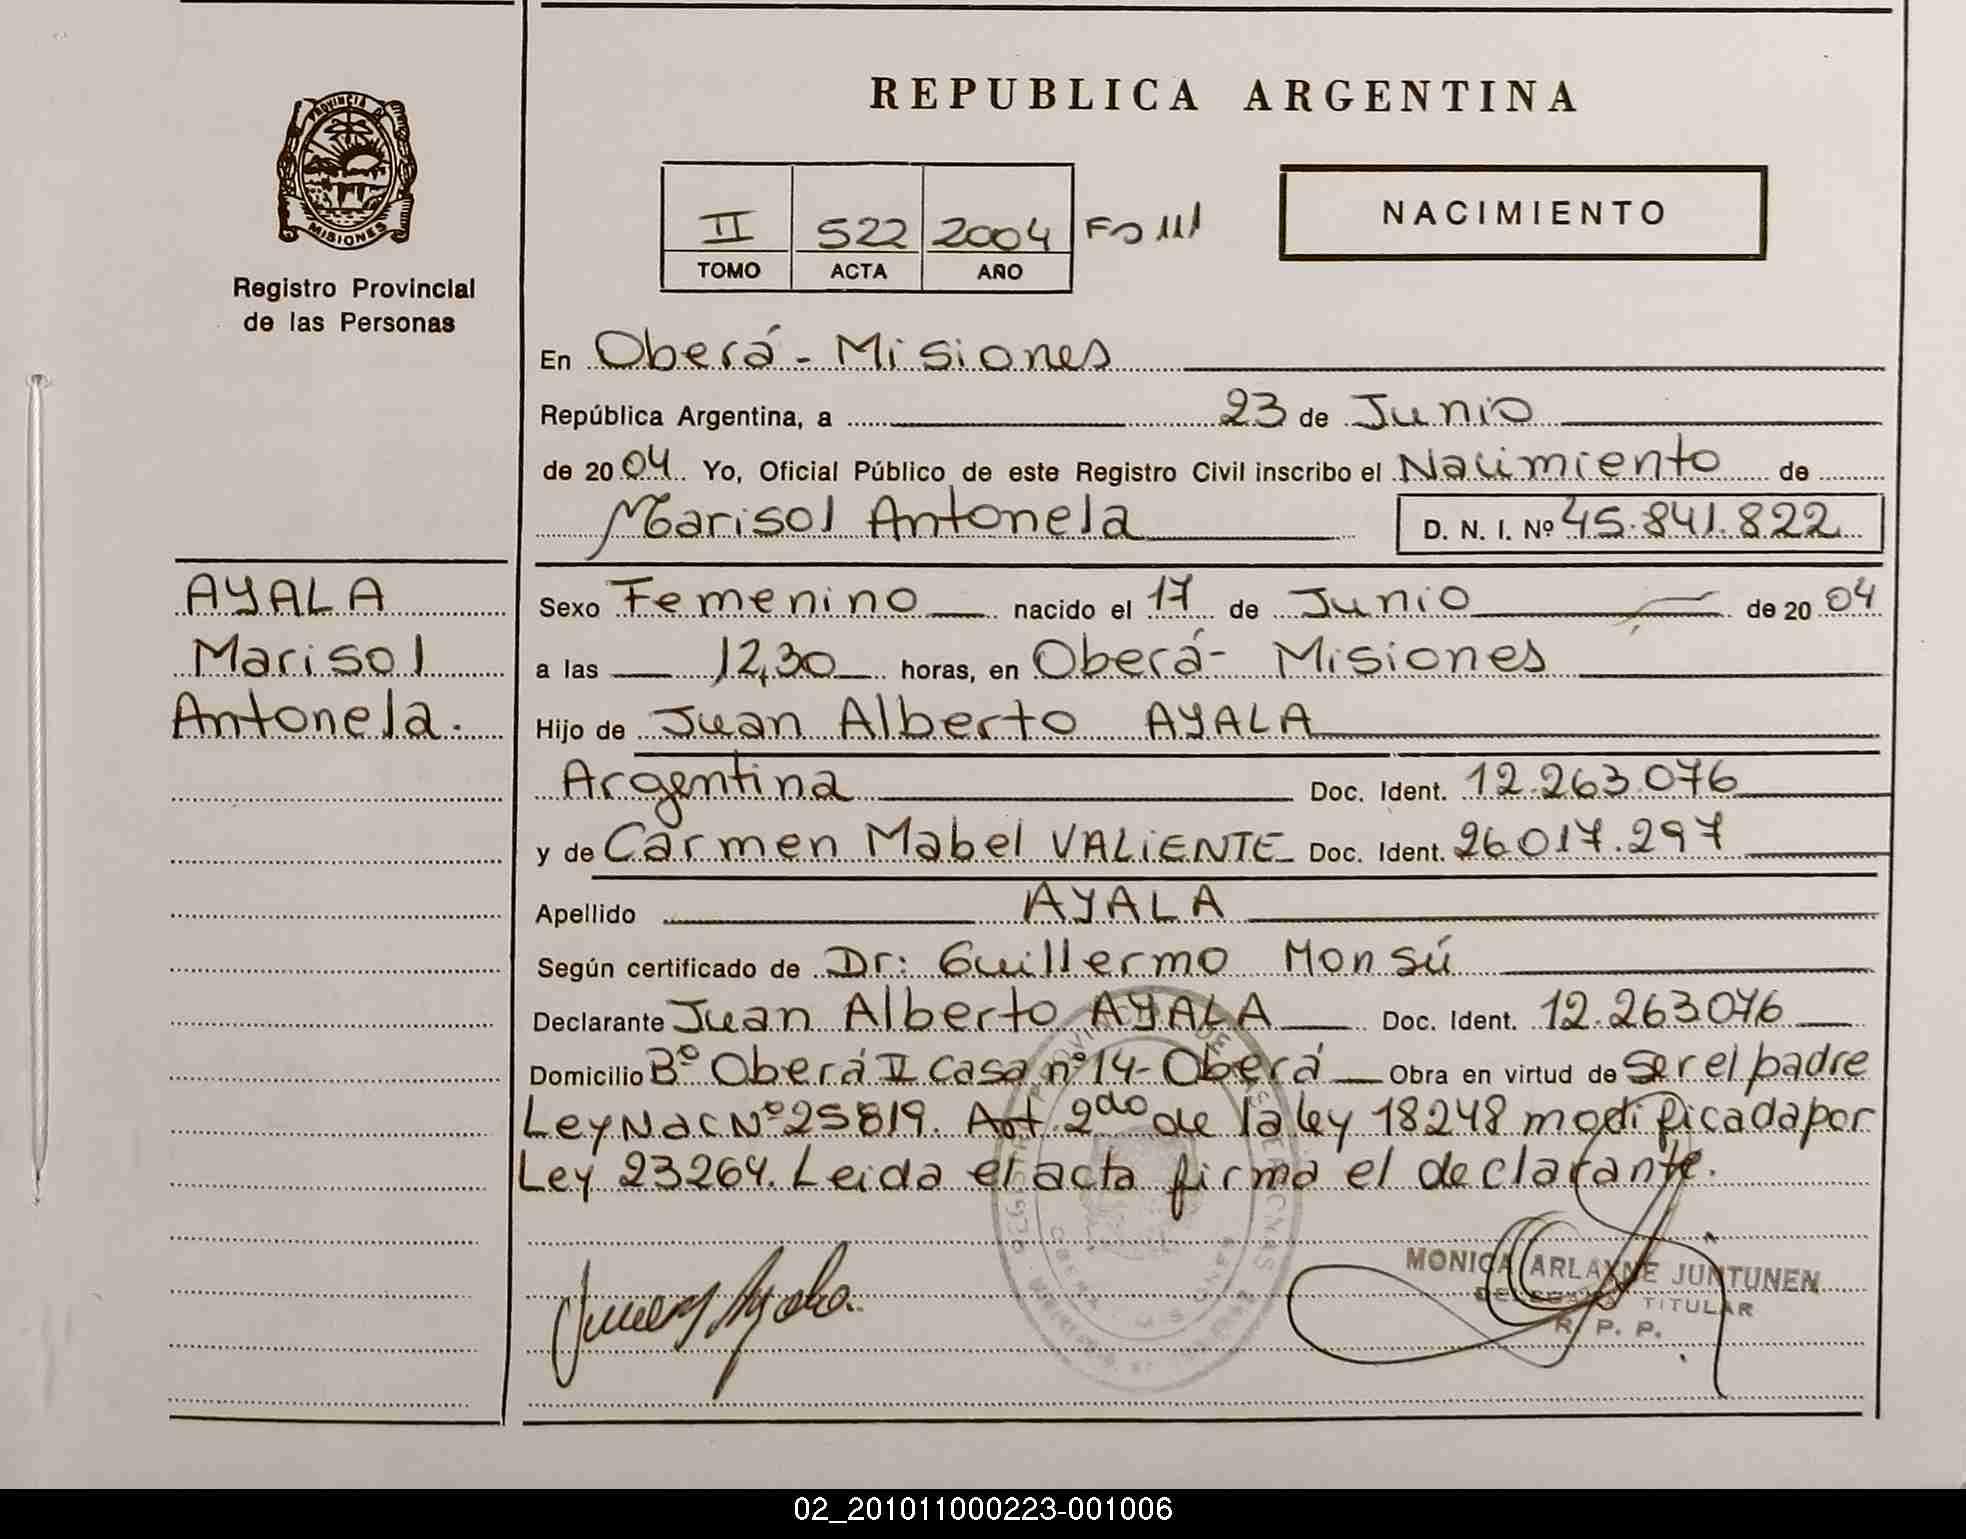 REPUBLICA ARGENTINA
PROVINCIA DE
MISIONES
Registro Provincial
de las Personas
II 522 2004 Fo 111
TOMO ACTA AÑO
NACIMIENTO
En Oberá - Misiones
República Argentina, a 23 de Junio
de 2004 Yo, Oficial Público de este Registro Civil inscribo el Nacimiento de
Marisol Antonela D. N. I. Nº 45.841.822
AYALA
Marisol
Antonela.
Sexo Femenino nacido el 17 de Junio de 2004
a las 12,30 horas, en Oberá - Misiones
Hijo de Juan Alberto AYALA
Argentina Doc. Ident. 12.263.076
y de Carmen Mabel VALIENTE Doc. Ident. 26.017.297
Apellido AYALA
Según certificado de Dr: Guillermo Monsú
Declarante Juan Alberto AYALA Doc. Ident. 12.263.076
Domicilio Bº Oberá II Casa nº 14 - Oberá Obra en virtud de ser el padre
Ley Nac Nº 25819. Art. 2do de la ley 18248 modificada por
Ley 23264. Leida el acta firma el declarante.
MONICA ARLAYNE JUNTUNEN
DELEGADA TITULAR
R. P. P.
02_201011000223-001006